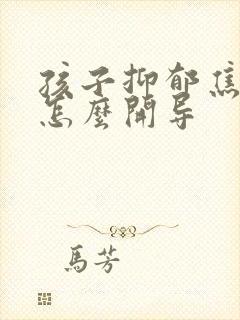 孩子抑郁焦
怎麼開导
馬芳